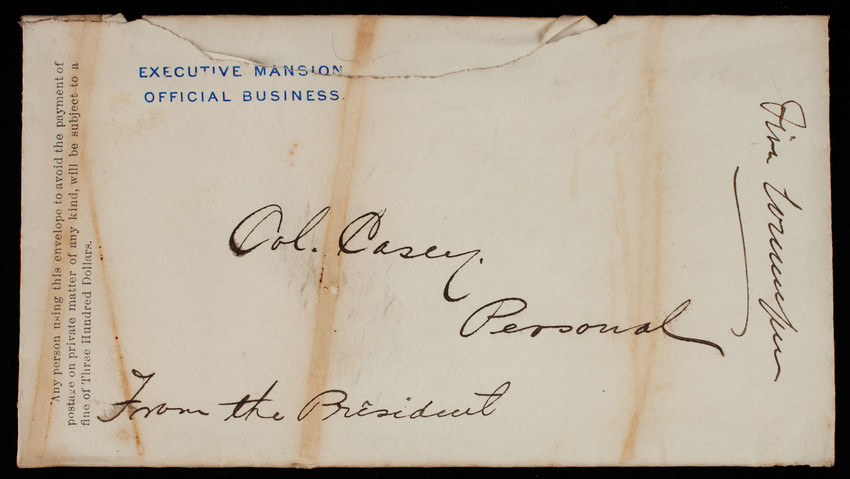 EXECUTIVE MANSION
OFFICIAL BUSINESS.
Any person using this envelope to avoid the payment of
postage on private matter of any kind, will be subject to a
fine of Three Hundred Dollars.
Col. Casey.
Personal
From the President